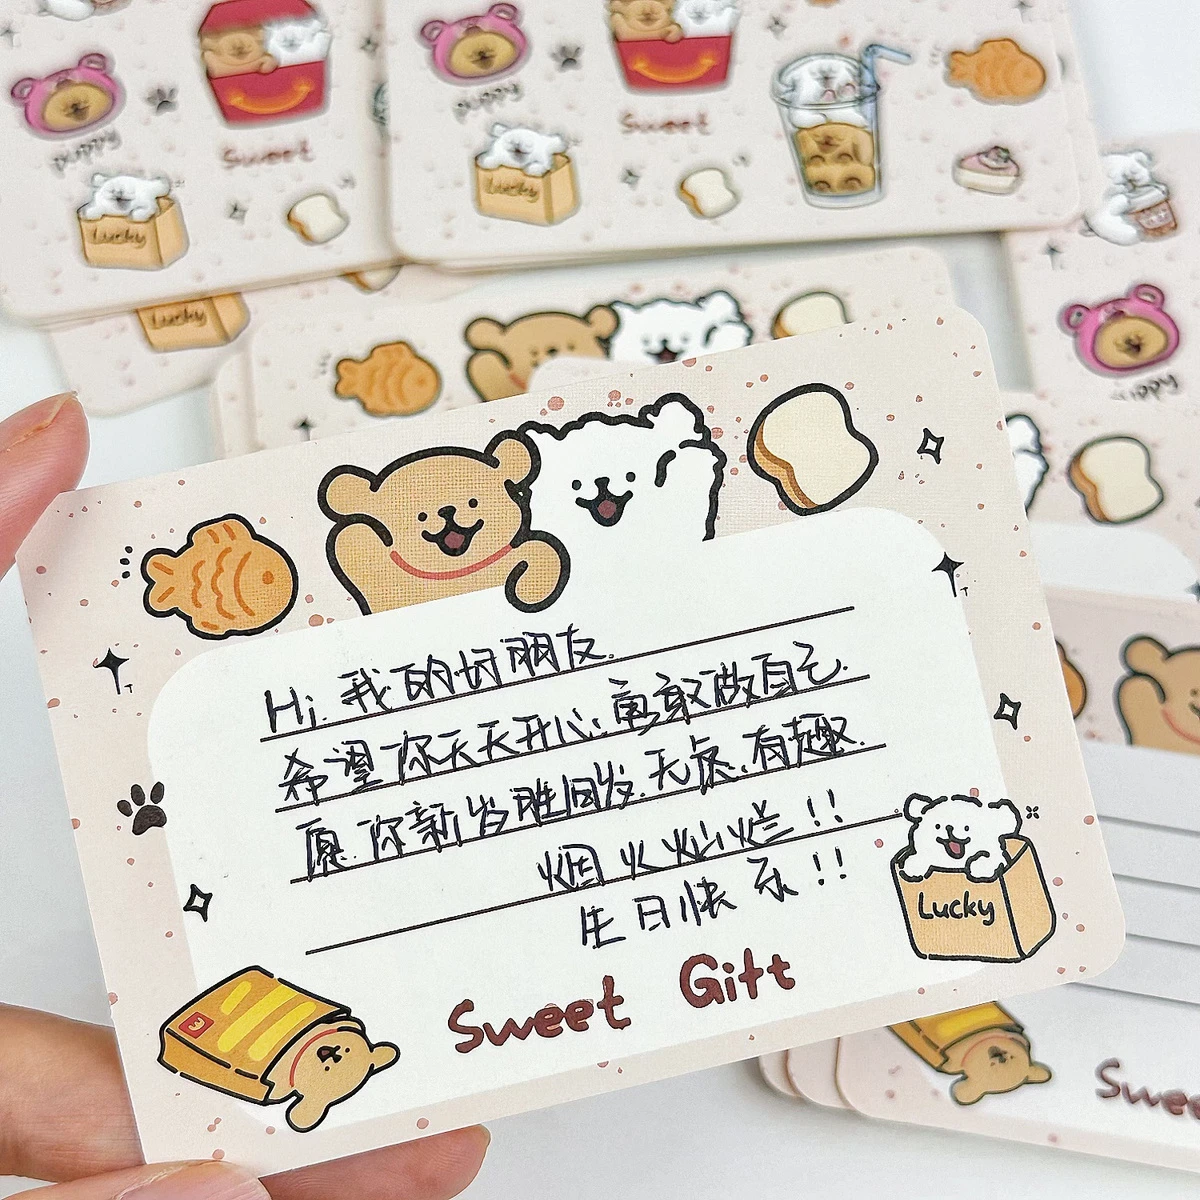 puppy
Sweet
Lucky
puppy
Sweet
Lucky
Lucky
puppy
Hi. 我的好朋友.
希望你天天开心; 勇敢做自己.
愿你新岁胜旧岁. 无虑. 有趣.
烟火灿烂!!
生日快乐!!
Lucky
Sweet Gift
Swee